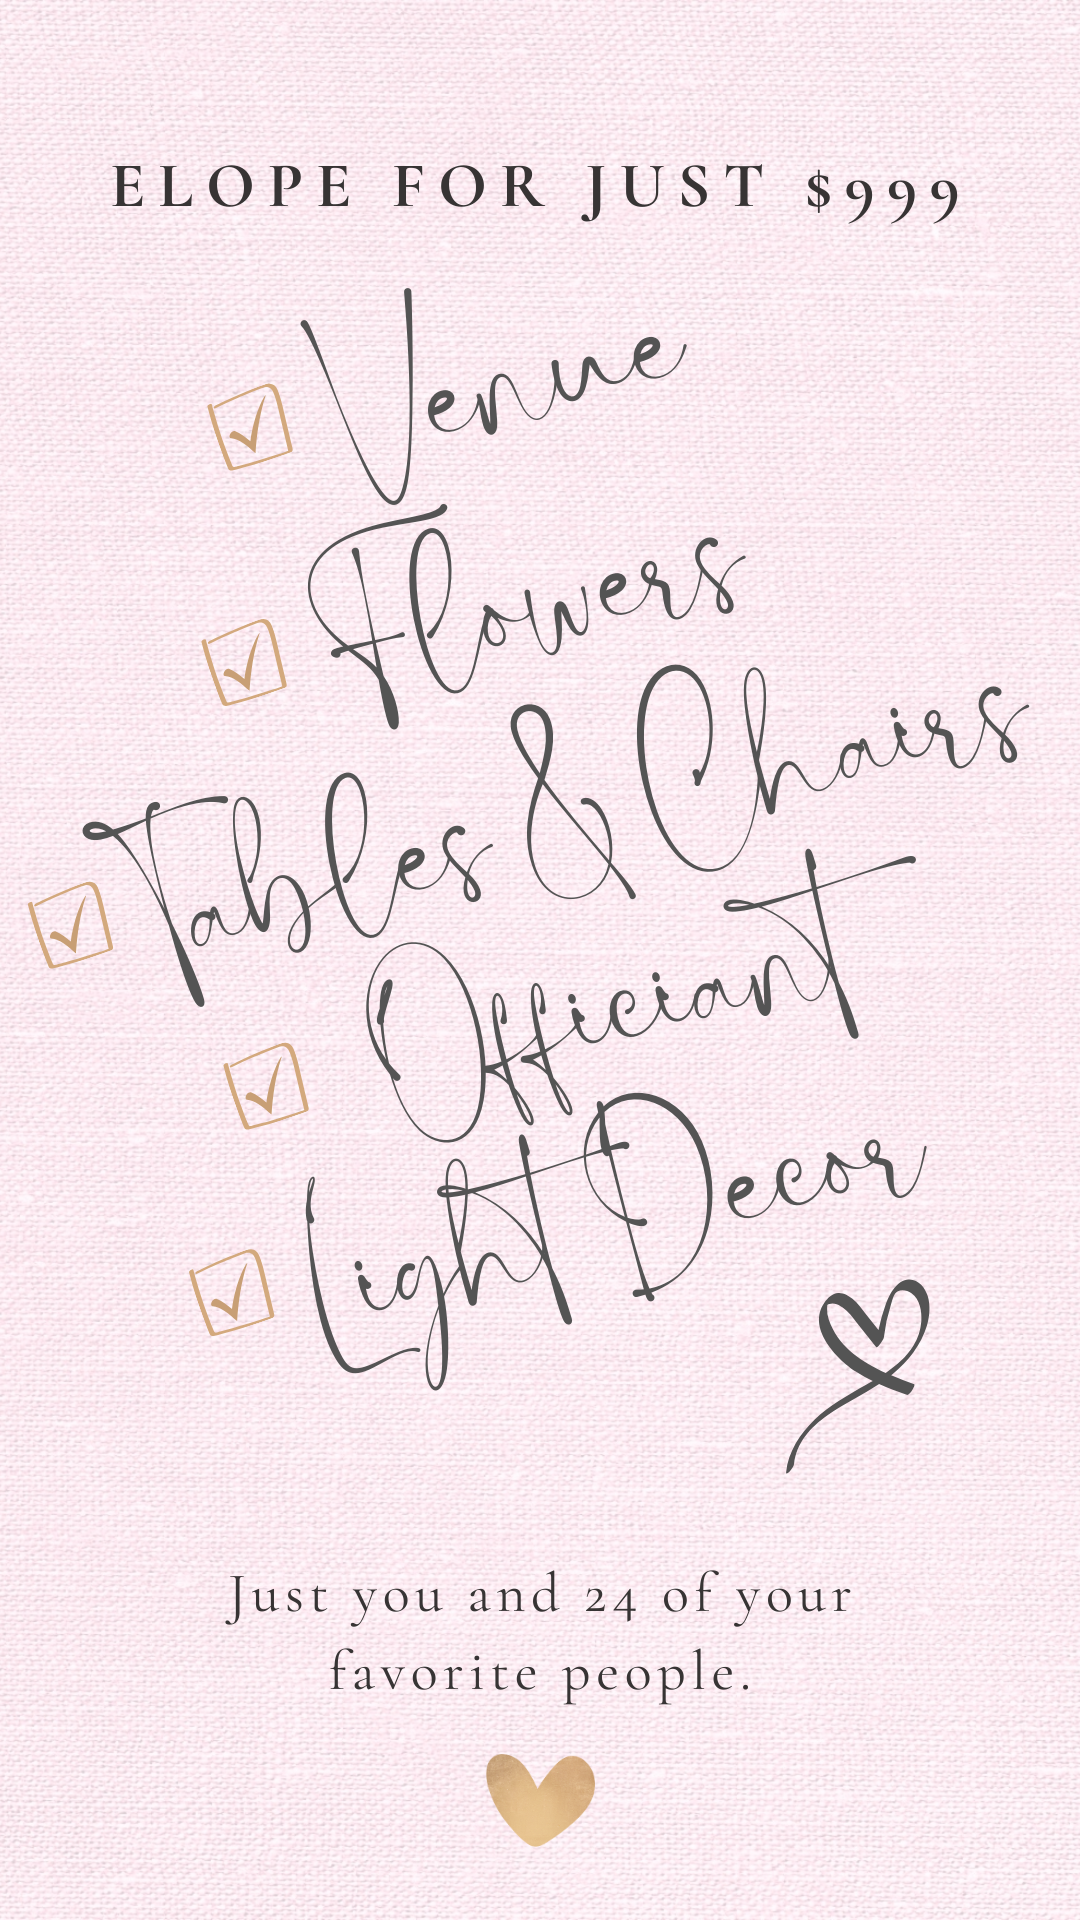 ELOPE FOR JUST $999
Venue
Flowers
Tables & Chairs
Officiant
Light Decor
Just you and 24 of your
favorite people.